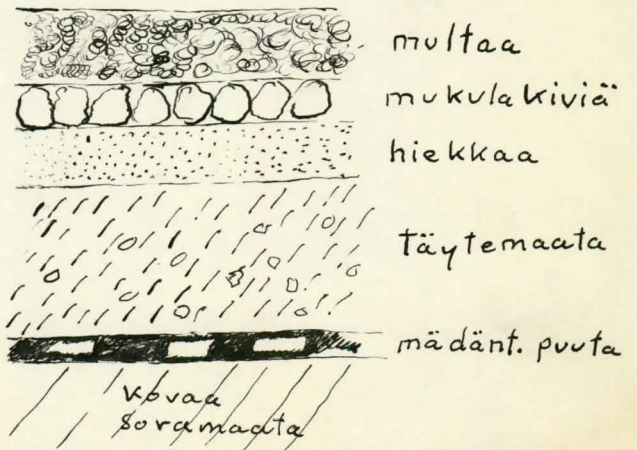 multaa
mukulakiviä
hiekkaa
täytemaata
mädänt. puuta
kovaa
soramaata